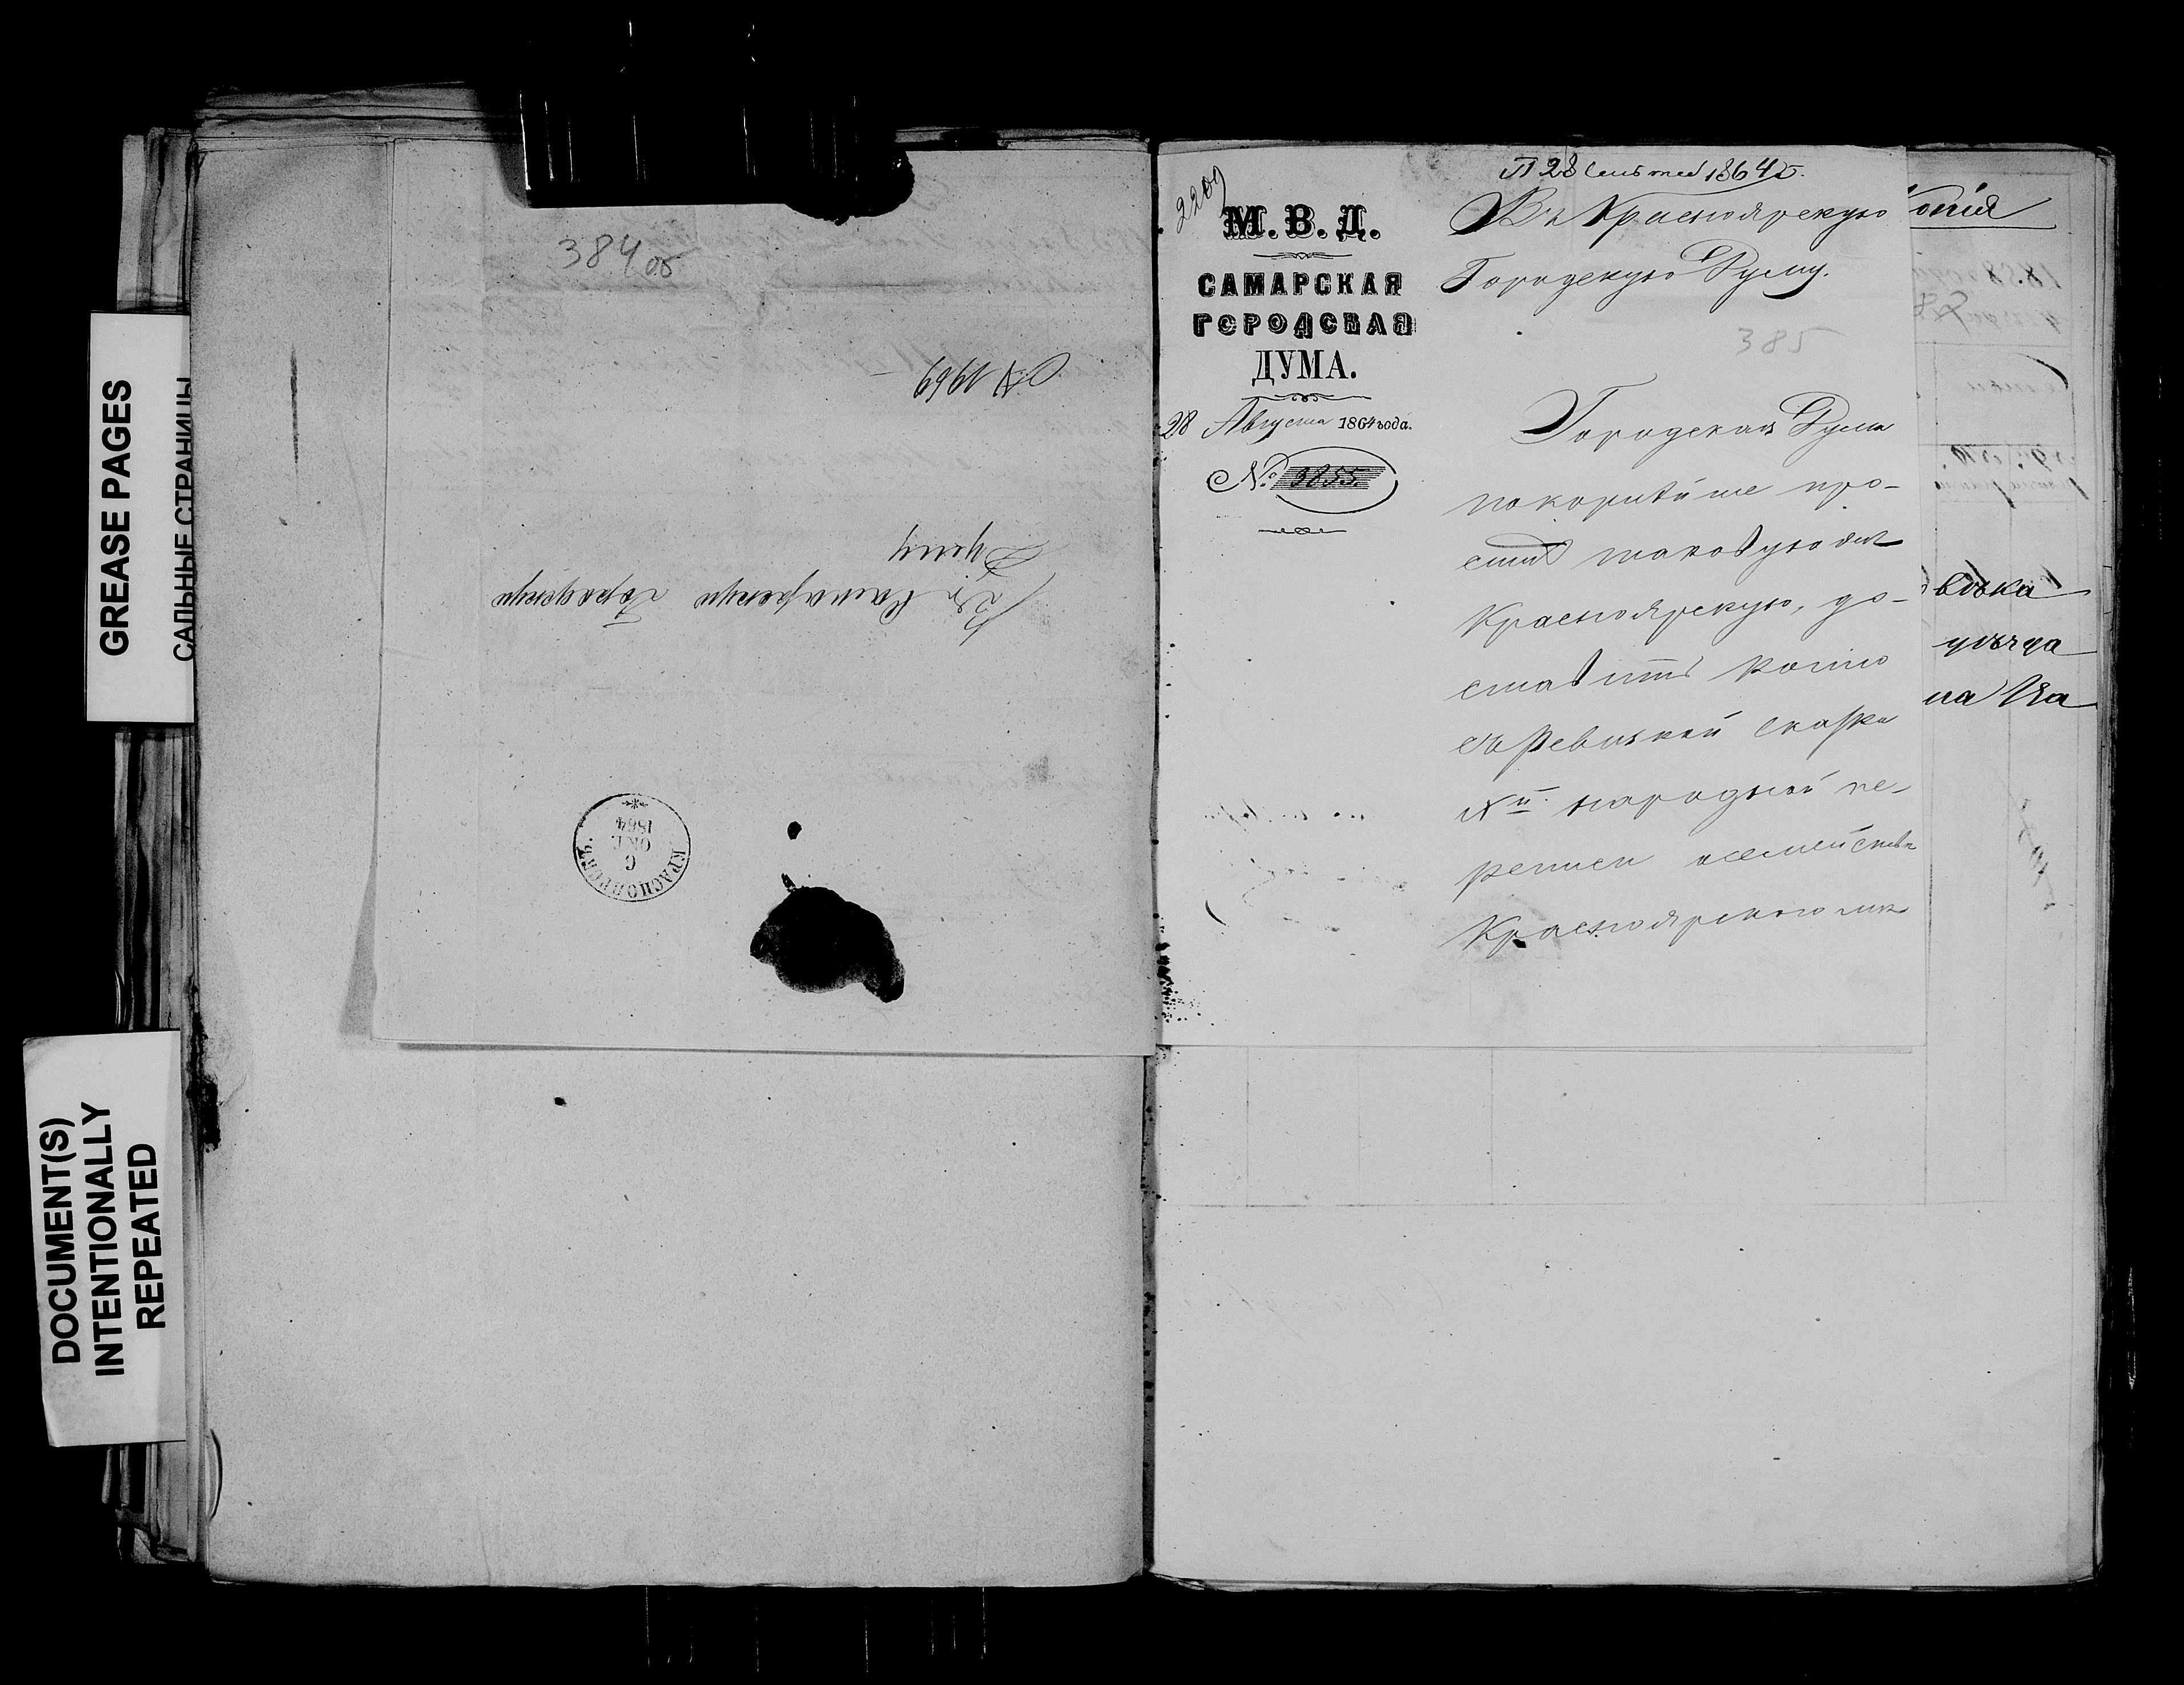 GREASE PAGES
САЛЬНЫЕ СТРАНИЦЫ
DOCUMENT(S)
INTENTIONALLY
REPEATED
384 об
№ 1969
Въ Самарскую Городскую
Думу
КРАСНОЯРСКЪ.
6
ОКТ.
1864
2209
П 28 Сентяб 1864 г.
М. В. Д.
САМАРСКАЯ
ГОРОДСКАЯ
ДУМА.
28 Августа 1864 года.
№ 3855.
Въ Красноярскую
Городскую Думу.
385
Городская Дума
покорнѣйше про-
ситъ таковую же
Красноярскую, до-
ставить копію
съ Ревизкой скаски
Xй народной пе-
реписи о семействѣ
Красноярскаго мѣ
опія
вовка
уѣзда
на Ива